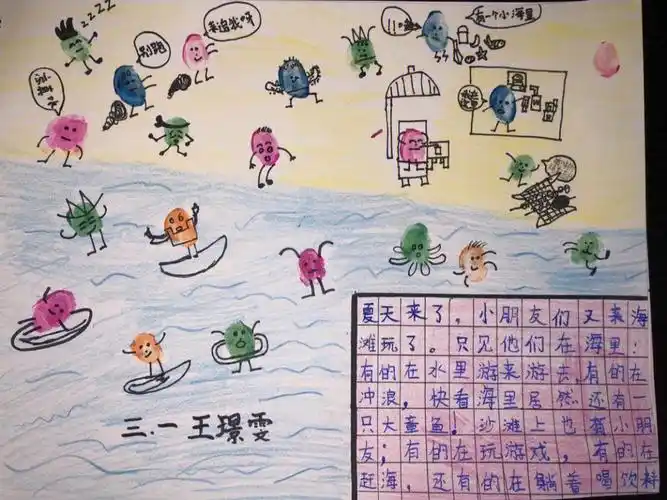 zzzz
别跑
来追我呀
有一个小海星
三.一 王璟雯
夏天来了，小朋友们又来海
滩玩了。只见他们在海里：
有的在水里游来游去，有的在
冲浪，快看海里居然还有一
只大章鱼！沙滩上也有小朋
友；有的在玩游戏，有的在
赶海，还有的在躺着喝饮料